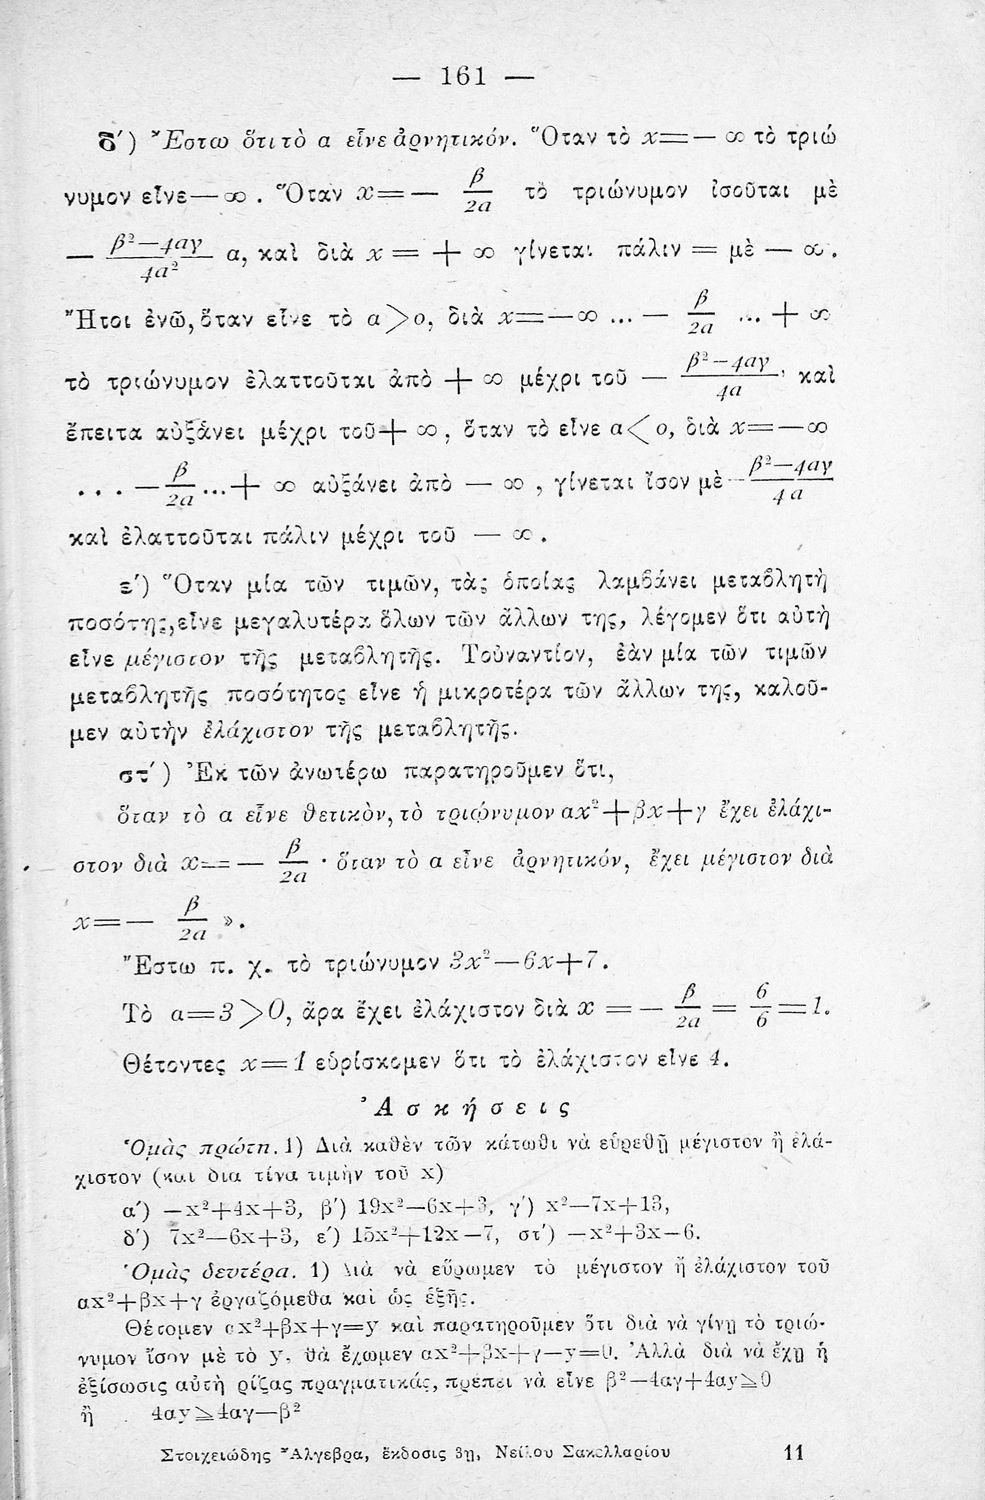 — 161 —
δ′) Ἔστω ὅτι τὸ α εἶνε ἀρνητικόν. Ὅταν τὸ x=— ∞ τὸ τριώ
νυμον εἶνε— ∞ . Ὅταν x=— β/2α τὸ τριώνυμον ἰσοῦται μὲ
— β²—4αγ/4α² α, καὶ διὰ x = + ∞ γίνεται πάλιν = μὲ — ∞.
Ἤτοι ἐνῶ, ὅταν εἶνε τὸ α>0, διὰ x=—∞ ... — β/2α ... + ∞
τὸ τριώνυμον ἐλαττοῦται ἀπὸ + ∞ μέχρι τοῦ — β²—4αγ/4α, καὶ
ἔπειτα αὐξάνει μέχρι τοῦ+ ∞, ὅταν τὸ εἶνε α<0, διὰ x=—∞
...—β/2α...+ ∞ αὐξάνει ἀπὸ — ∞ , γίνεται ἴσον μὲ—β²—4αγ/4α
καὶ ἐλαττοῦται πάλιν μέχρι τοῦ — ∞ .
ε′) Ὅταν μία τῶν τιμῶν, τὰς ὁποίας λαμβάνει μεταβλητὴ
ποσότης, εἶνε μεγαλυτέρα ὅλων τῶν ἄλλων της, λέγομεν ὅτι αὐτὴ
εἶνε μέγιστον τῆς μεταβλητῆς. Τοὐναντίον, ἐὰν μία τῶν τιμῶν
μεταβλητῆς ποσότητος εἶνε ἡ μικροτέρα τῶν ἄλλων της, καλοῦ-
μεν αὐτὴν ἐλάχιστον τῆς μεταβλητῆς.
στ′) Ἐκ τῶν ἀνωτέρω παρατηροῦμεν ὅτι,
ὅταν τὸ α εἶνε θετικὸν, τὸ τριώνυμον αx²+βx+γ ἔχει ἐλάχι-
στον διὰ x=— β/2α · ὅταν τὸ α εἶνε ἀρνητικόν, ἔχει μέγιστον διὰ
x=— β/2α ».
Ἔστω π. χ. τὸ τριώνυμον 3x²—6x+7.
Τὸ α=3>0, ἄρα ἔχει ἐλάχιστον διὰ x =— β/2α = 6/6 =1.
Θέτοντες x=1 εὑρίσκομεν ὅτι τὸ ἐλάχιστον εἶνε 4.
Ἀσκήσεις
Ὁμὰς πρώτη. 1) Διὰ καθὲν τῶν κάτωθι νὰ εὑρεθῇ μέγιστον ἢ ἐλά-
χιστον (καὶ διὰ τίνα τιμὴν τοῦ x)
α′) —x²+4x+3, β′) 19x²—6x+3, γ′) x²—7x+13,
δ′) 7x²—6x+3, ε′) 15x²+12x—7, στ′) —x²+3x—6.
Ὁμὰς δευτέρα. 1) Διὰ νὰ εὕρωμεν τὸ μέγιστον ἢ ἐλάχιστον τοῦ
αx²+βx+γ ἐργαζόμεθα καὶ ὡς ἑξῆς.
Θέτομεν αx²+βx+γ=y καὶ παρατηροῦμεν ὅτι διὰ νὰ γίνῃ τὸ τριώ-
νυμον ἴσον μὲ τὸ y, θὰ ἔχωμεν αx²+βx+γ—y=0. Ἀλλὰ διὰ νὰ ἔχῃ ἡ
ἐξίσωσις αὐτὴ ρίζας πραγματικάς, πρέπει νὰ εἶνε β²—4αγ+4αy≧0
ἢ 4αy≧4αγ—β²
Στοιχειώδης Ἄλγεβρα, ἔκδοσις 3η, Νείλου Σακελλαρίου 11